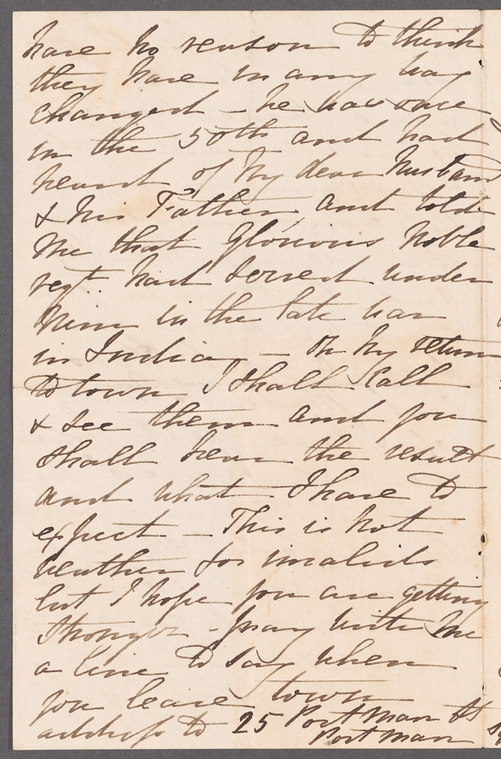 have no reason to think
they have in any way
changed - he was once
in the 50th and had
heard of my dear husband
& his Father, and told
me that glorious noble
regt. had served under
him in the late war
in India, - On my return
to town I shall call
& see them and you
shall hear the result
and what I have to
expect - This is not
weather for invalids
but I hope you are getting
stronger - pray write me
a line to say when
you leave town
address to 25 Portman St
Portman